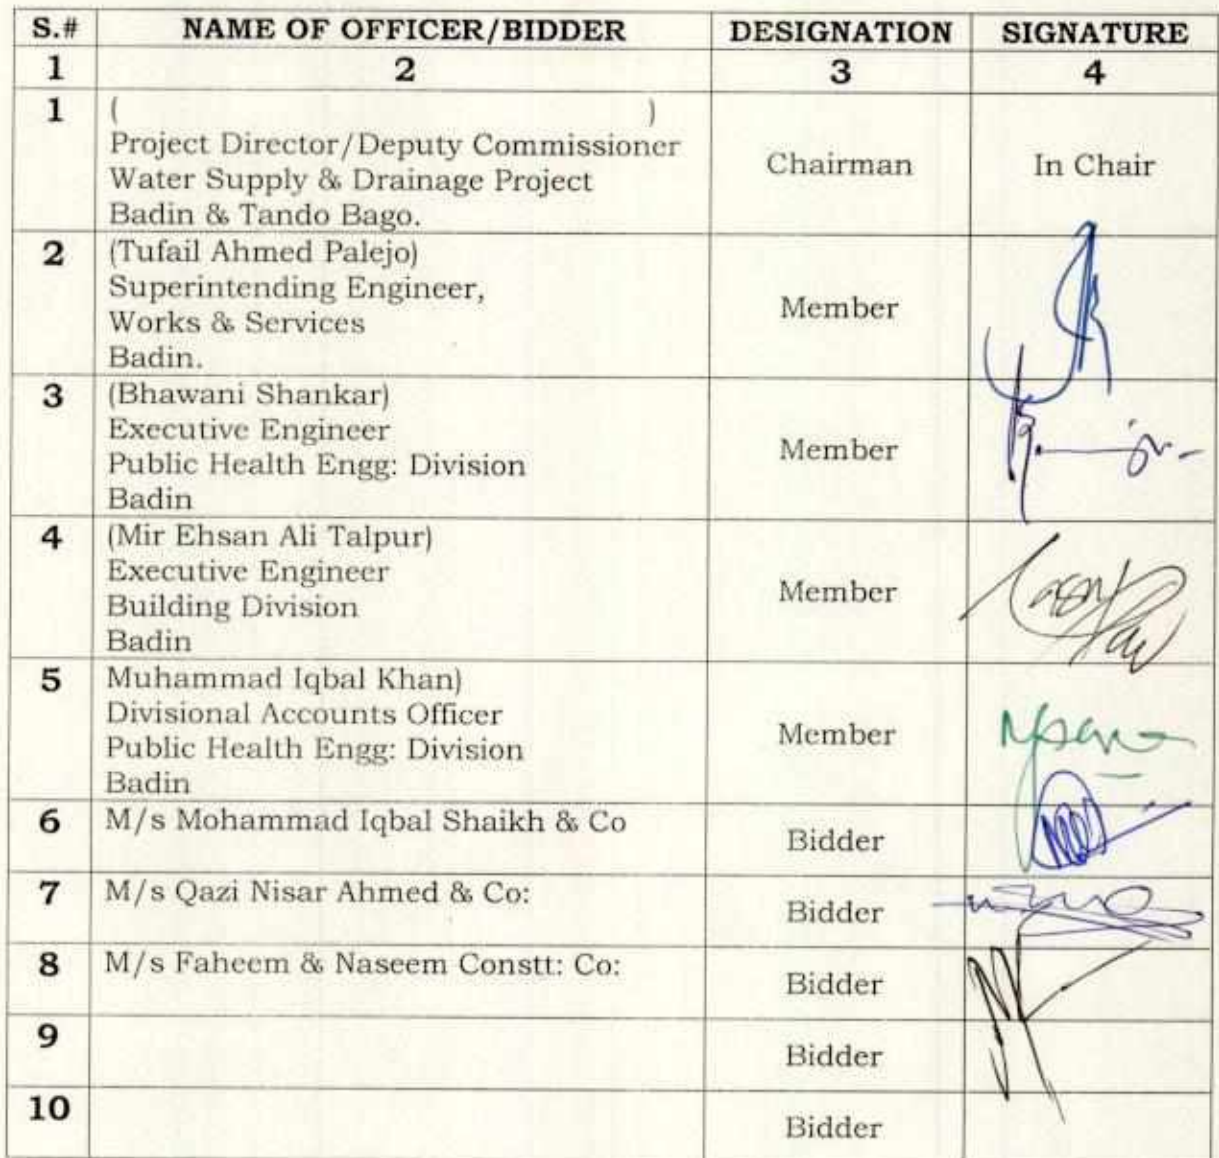 S.# NAME OF OFFICER/BIDDER DESIGNATION SIGNATURE
1 2 3 4
1 ( )
Project Director/Deputy Commissioner
Water Supply & Drainage Project
Badin & Tando Bago.
Chairman In Chair
2 (Tufail Ahmed Palejo)
Superintending Engineer,
Works & Services
Badin.
Member
3 (Bhawani Shankar)
Executive Engineer
Public Health Engg: Division
Badin
Member
4 (Mir Ehsan Ali Talpur)
Executive Engineer
Building Division
Badin
Member
5 Muhammad Iqbal Khan)
Divisional Accounts Officer
Public Health Engg: Division
Badin
Member
6 M/s Mohammad Iqbal Shaikh & Co
Bidder
7 M/s Qazi Nisar Ahmed & Co:
Bidder
8 M/s Faheem & Naseem Constt: Co:
Bidder
9
Bidder
10
Bidder